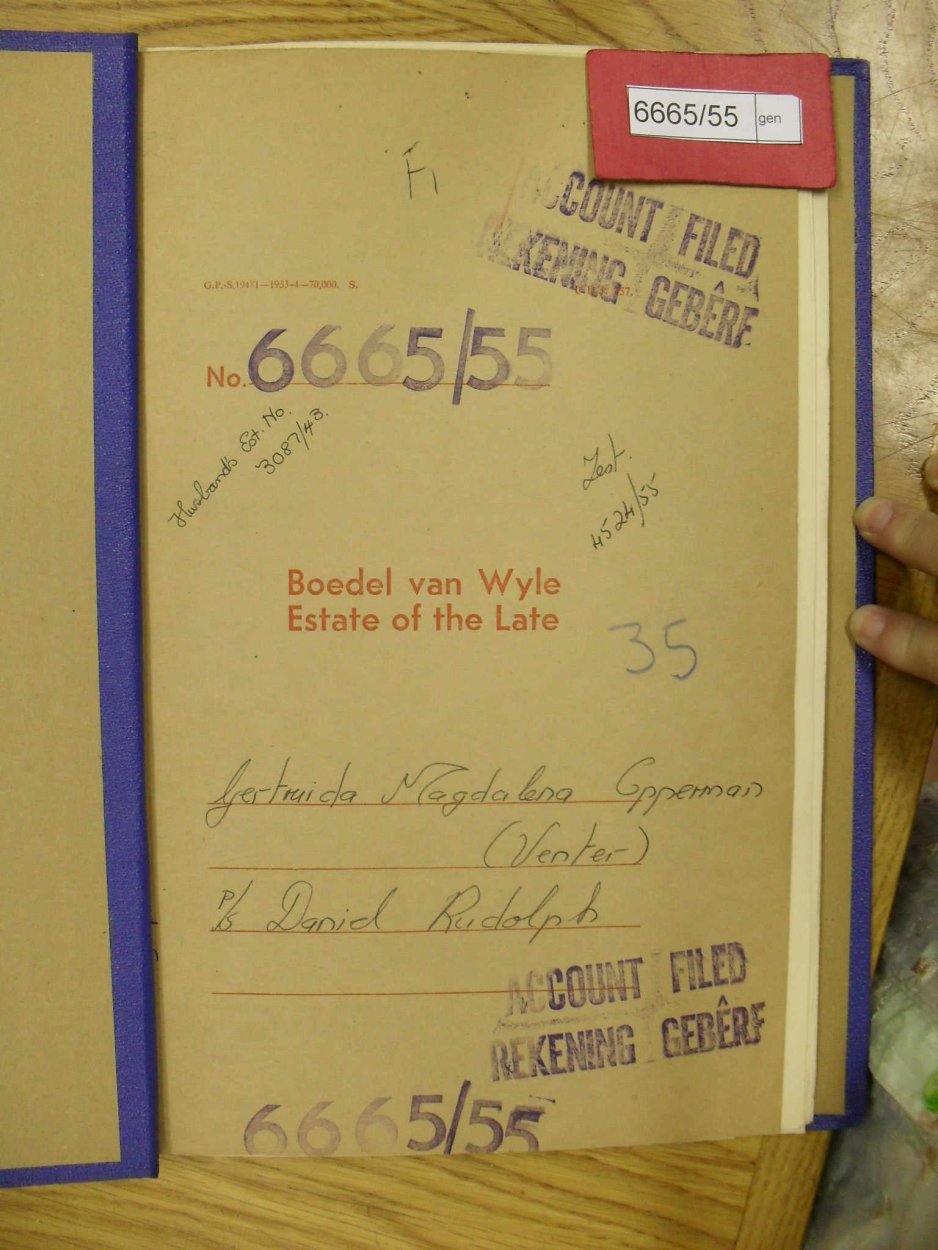 6665/55 gen
F1
ACCOUNT FILED
REKENING GEBÊRE
G.P.-S.19481—1953-4—70,000. S.
No. 6665/55
Husband's Est. No.
3087/43.
Test.
4524/55
Boedel van Wyle
Estate of the Late
35
Gertruida Magdalena Opperman
(Venter)
p/s Daniel Rudolph
ACCOUNT FILED
REKENING GEBÊRE
6665/55